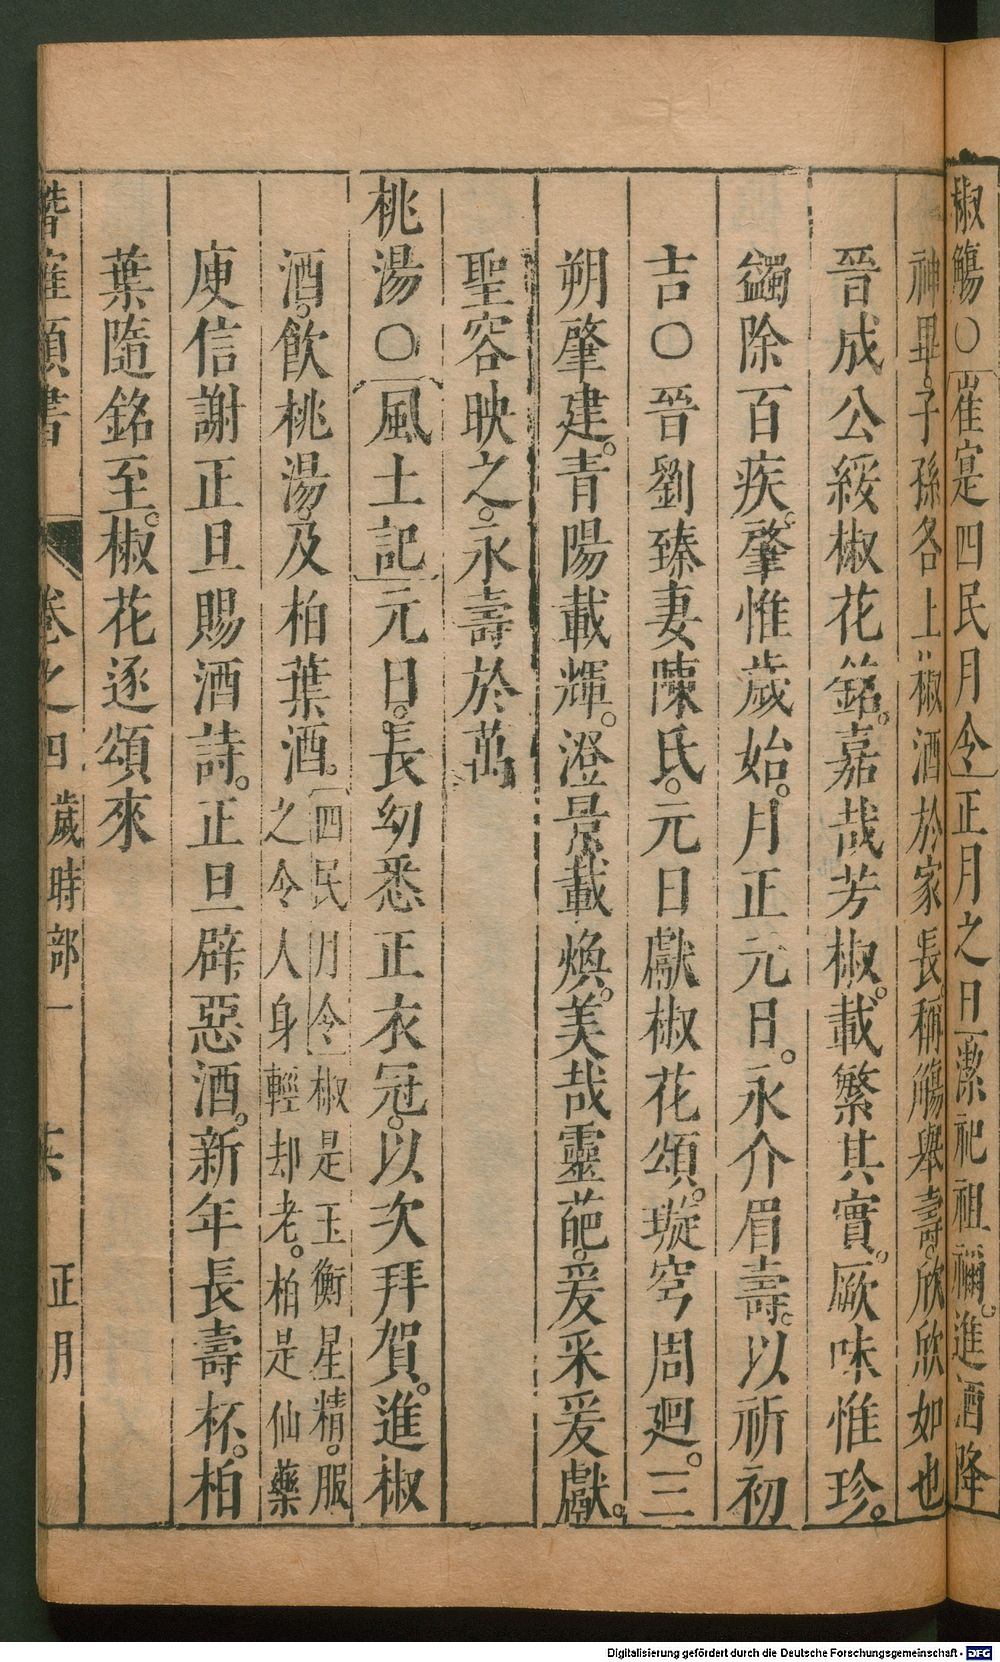 椒觴○崔寔四民月令正月之日潔祀祖禰。進酒降
神畢。子孫各上椒酒於家長稱觴舉壽。欣欣如也
晉成公綏椒花銘。嘉哉芳椒。載繁其實。厥味惟珍。
蠲除百疾。肇惟歲始。月正元日。永介眉壽。以祈初
吉○晉劉臻妻陳氏。元日獻椒花頌。璇穹周廻。三
朔肇建。青陽載輝。澄景載煥。美哉靈葩。爰采爰獻。
聖容映之。永壽於萬
桃湯○風土記元日。長幼悉正衣冠。以次拜賀。進椒
酒。飲桃湯。及柏葉酒。四民月令椒是玉衡星精。服
之令人身輕却老。柏是仙藥
庾信謝正旦賜酒詩。正旦辟惡酒。新年長壽杯。柏
葉隨銘至。椒花逐頌來
潛確類書 卷之四 歲時部一 正月
Digitalisierung gefördert durch die Deutsche Forschungsgemeinschaft - DFG